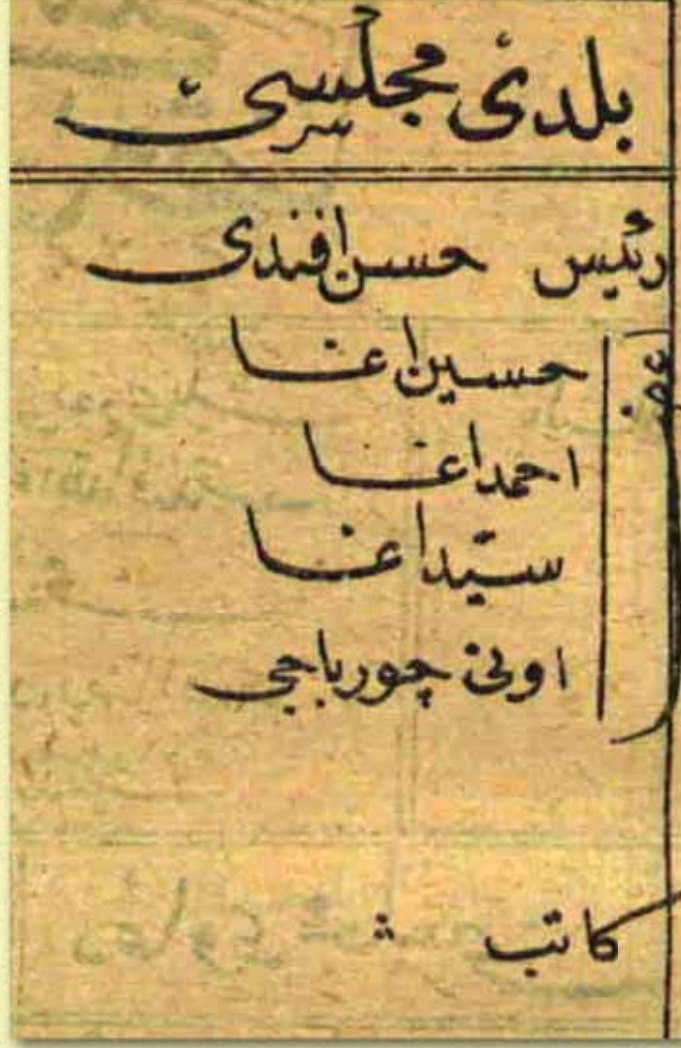 بلدی مجلسی
رئیس حسن افندی
اعضا
حسین اغا
احمد اغا
سیّد اغا
چورباجی
كاتب